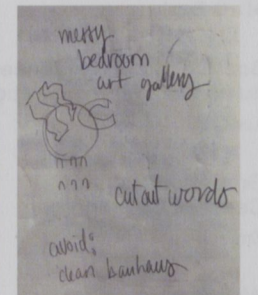 messy
bedroom
art gallery
cutout words
avoid:
clean bauhaus